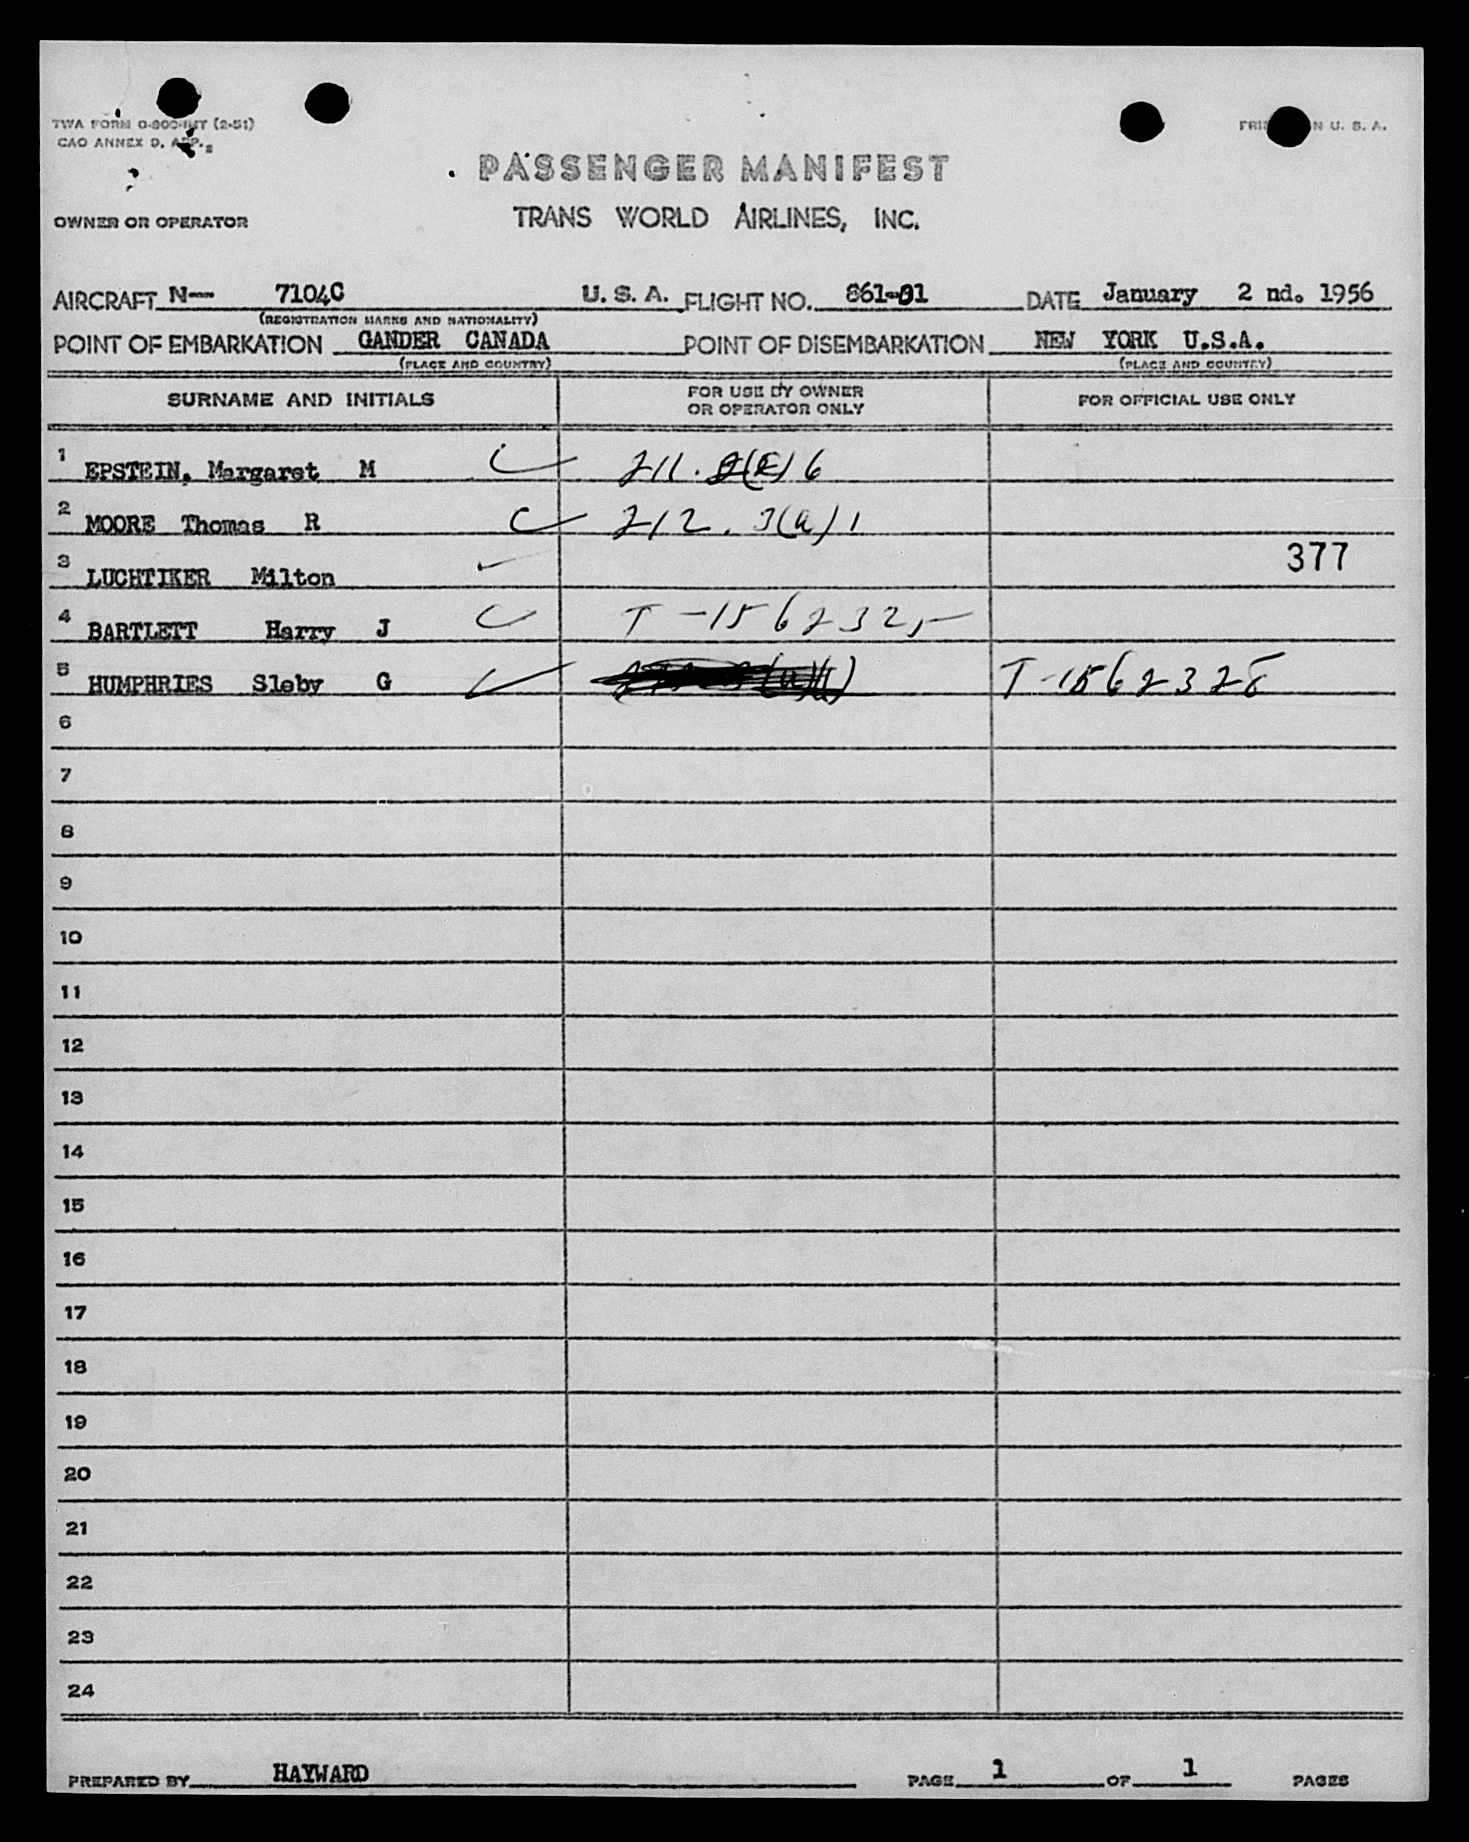 TWA FORM
CAO ANNEX 9, APP. 2
PRINTED IN U. S. A.
PASSENGER MANIFEST
OWNER OR OPERATOR TRANS WORLD AIRLINES, INC.
AIRCRAFT N-- 7104C U. S. A. FLIGHT NO. 861-01 DATE January 2 nd. 1956
(REGISTRATION MARKS AND NATIONALITY)
POINT OF EMBARKATION GANDER CANADA POINT OF DISEMBARKATION NEW YORK U.S.A.
(PLACE AND COUNTRY) (PLACE AND COUNTRY)
SURNAME AND INITIALS FOR USE BY OWNER OR OPERATOR ONLY FOR OFFICIAL USE ONLY
1 EPSTEIN, Margaret M 211.
2 MOORE Thomas R 212. 3(a) 1
377
3 LUCHTIKER Milton
4 BARTLETT Harry J
5 HUMPHRIES Sleby G T-1562328
6
7
8
9
10
11
12
13
14
15
16
17
18
19
20
21
22
23
24
PREPARED BY HAYWARD PAGE 1 OF 1 PAGES